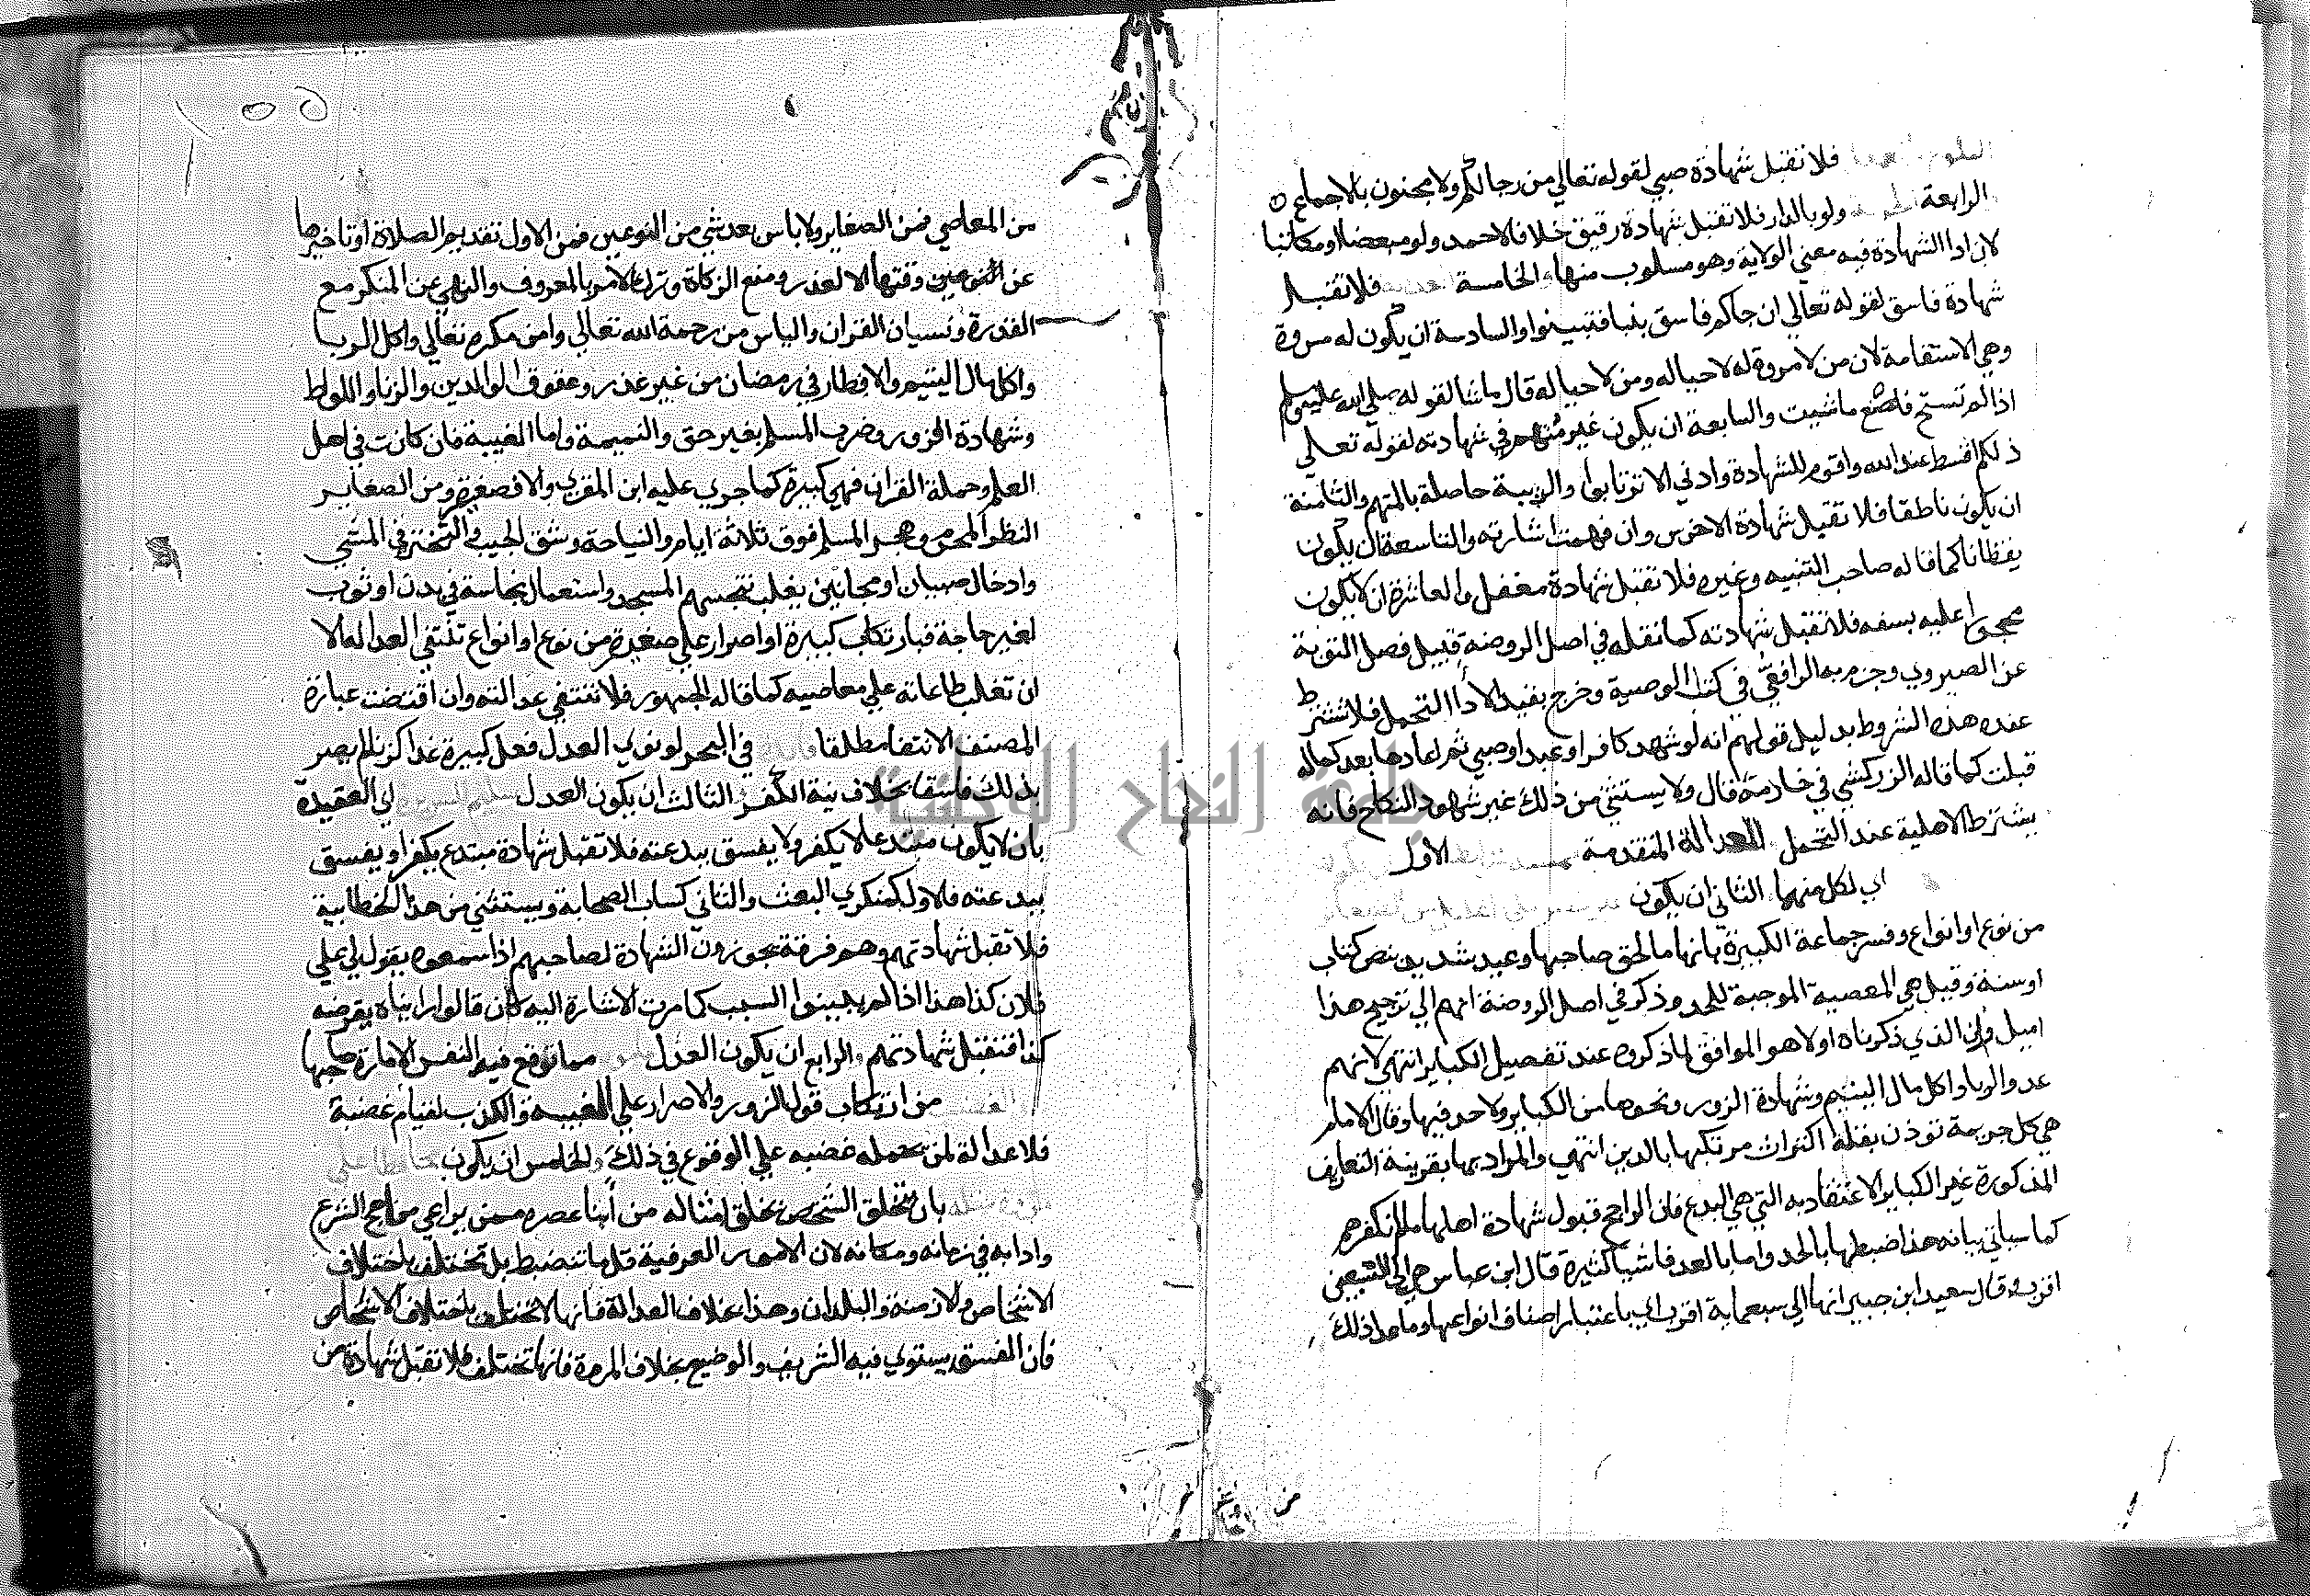 البلوغ فلا تقبل شهادة صبي لقوله تعالى من رجالكم ولا مجنون بالاجماع
الرابعة ولو بالدار فلا تقبل شهادة رقيق خلافا لاحمد ولو مبعضا او مكاتبا
لان ادا الشهادة فيه معني الولاية وهو مسلوب منها والخامسة فلا تقبل
شهادة فاسق لقوله تعالي ان جاكم فاسق بنبا فتبينوا والسادسة ان يكون له مروة
وهي الاستقامة لان من لا مروة له لا حيا له ومن لا حيا له قال ما شا لقوله صلي الله عليه وسلم
اذا لم تستح فاصنع ما شيت والسابعة ان يكون غير متهم في شهادته لقوله تعالي
ذلكم اقسط عند الله واقوم للشهادة وادني الا ترتابوا والريبة حاصلة بالمتهم والثامنة
ان يكون ناطقا فلا تقبل شهادة الاخرس وان فهمت اشارته والتاسعة ان يكون
يقظانا كما قاله صاحب التنبيه وغيره فلا تقبل شهادة مغفل والعاشرة ان لا يكون
محجورا عليه بسفه فلا تقبل شهادته كما نقله في اصل الروضة قبيل فصل التوبة
عن الصيمري وجزم به الرافعي في كتاب الوصية وخرج بقيد الادا التحمل فلا تشترط
عنده هذه الشروط بدليل قولهم انه لو شهد كافر او عبد او صبي ثم اعادها بعد كماله
قبلت كما قاله الزركشي في خادمه قال ولا يستثني من ذلك غير شهود النكاح فانه
يشترط الاهلية عند التحمل العدالة المتقدمة الاول
اي لكل منهما الثاني ان يكون
من نوع او انواع وفسر جماعة الكبيرة بانها ما لحق صاحبها وعيد شديد بنص كتاب
او سنة وقيل هي المعصية الموجبة للحد وذكر في اصل الروضة انهم الي ترجيح هذا
اميل وان الذي ذكرناه اولا هو الموافق لما ذكروه عند تفصيل الكباير انتهي لانهم
عدوا الربا واكل مال اليتيم وشهادة الزور ونحوها من الكباير ولا حد فيها وقال الامام
هي كل جريمة توذن بقلة اكتراث مرتكبها بالدين انتهي والمراد بها بقرينة التعاريف
المذكورة غير الكباير الاعتقادية التي هي البدع فان الراجح قبول شهادة اهلها ما لم نكفرهم
كما سياتي بيانه هذا ضبطها بالحد واما بالعد فاشيا كثيرة قال ابن عباس هي الي السبعين
اقرب وقال سعيد ابن جبير انها الي سبعماية اقرب اي باعتبار اصناف انواعها وما عدا ذلك
من المعاصي فمن الصغاير ولا باس بعد شي من النوعين فمن الاول تقديم الصلاة او تاخيرها
عن وقتها الا لعذر ومنع الزكاة وترك الامر بالمعروف والنهي عن المنكر مع
القدرة ونسيان القران والياس من رحمة الله تعالي وامن مكره تعالي واكل الربا
واكل مال اليتيم والافطار في رمضان من غير عذر وعقوق الوالدين والزنا واللواط
وشهادة الزور وضرب المسلم بغير حق والنميمة واما الغيبة فان كانت في اهل
العلم وحملة القران فهي كبيرة كما جري عليه ابن المقري والا فصغيرة ومن الصغاير
النظر المحرم وهجر المسلم فوق ثلاثة ايام والنياحة وشق الجيب والتبختر في المشي
وادخال صبيان او مجانين يغلب تنجسهم المسجد واستعمال نجاسة في بدن او ثوب
لغير حاجة فبارتكاب كبيرة او اصرار علي صغيرة من نوع او انواع تنتفي العدالة الا
ان تغلب طاعاته علي معاصيه كما قاله الجمهور فلا تنتفي عدالته وان اقتضت عبارة
المصنف الانتفا مطلقا في البحر لو نوي العدل فعل كبيرة غدا كزنا لم يصر
بذلك فاسقا بخلاف نية الكفر الثالث ان يكون العدل سليم السريرة اي العقيدة
بان لا يكون مبتدعا لا يكفر ولا يفسق ببدعته فلا تقبل شهادة مبتدع يكفر او يفسق
ببدعته فالاول كمنكري البعث والثاني كساب الصحابة ويستثني من هذا الخطابية
فلا تقبل شهادتهم وهم فرقة يجوزون الشهادة لصاحبهم اذا سمعوه يقول لي علي
فلان كذا هذا اذا لم يبينوا السبب كما مرت الاشارة اليه كان قالوا راينا يقرضه
كذا فتقبل شهادتهم والرابع ان يكون العدل مما توقع فيه النفس الامارة صاحبها
من ارتكاب قول الزور والاصرار علي الغيبة والكذب لقيام غضبه
فلا عدالة لمن يحمله غضبه علي الوقوع في ذلك والخامس ان يكون حافظا علي
مروة مثله بان يتخلق الشخص بخلق امثاله من ابنا عصره ممن يراعي مناهج الشرع
وادابه في زمانه ومكانه لان الامور العرفية قل ما تنضبط بل تختلف باختلاف
الاشخاص والازمنة والبلدان وهذا بخلاف العدالة فانها لا تختلف باختلاف الاشخاص
فان الفسق يستوي فيه الشريف والوضيع بخلاف المروة فانها تختلف فلا تقبل شهادة من